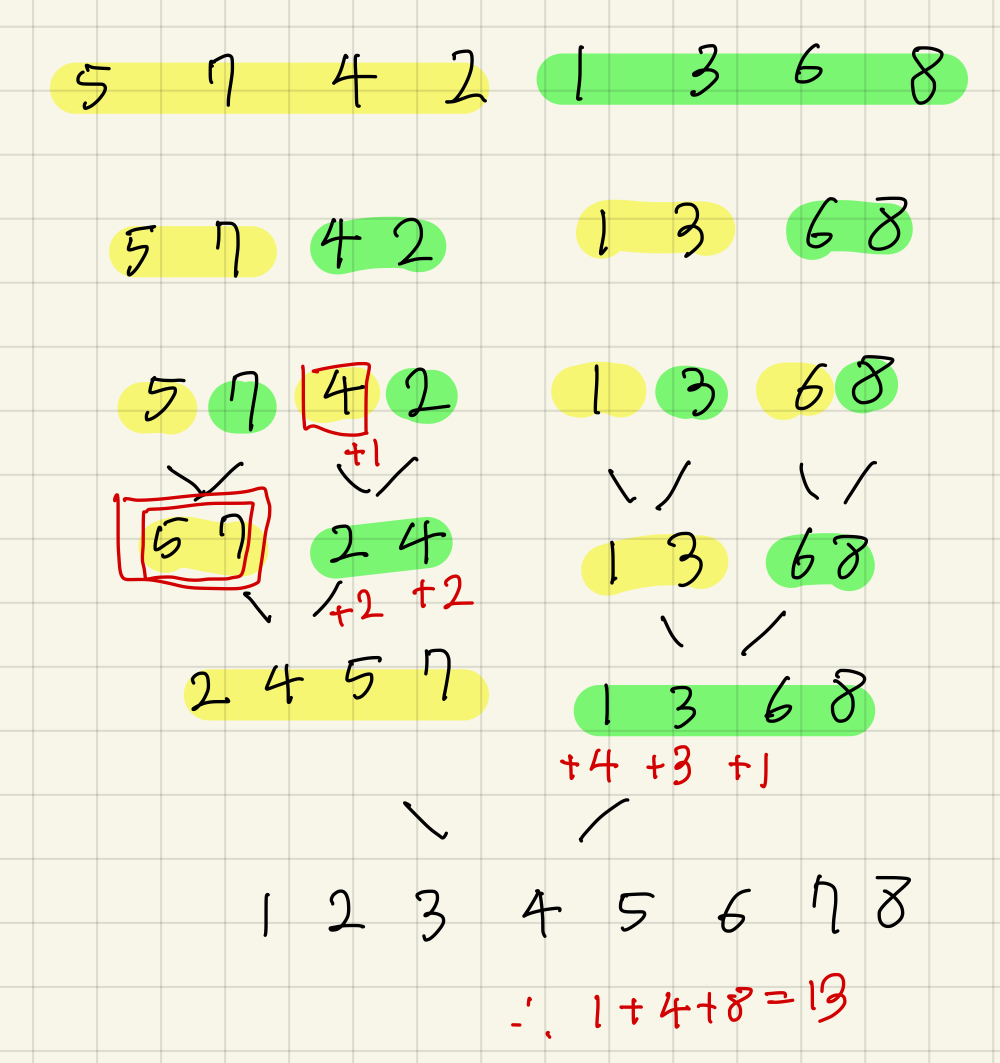 5 7 4 2 1 3 6 8
5 7 4 2 1 3 6 8
5 7 4 2 1 3 6 8
+1
5 7 2 4 1 3 6 8
+2 +2
2 4 5 7 1 3 6 8
+4 +3 +1
1 2 3 4 5 6 7 8
∴ 1+4+8=13